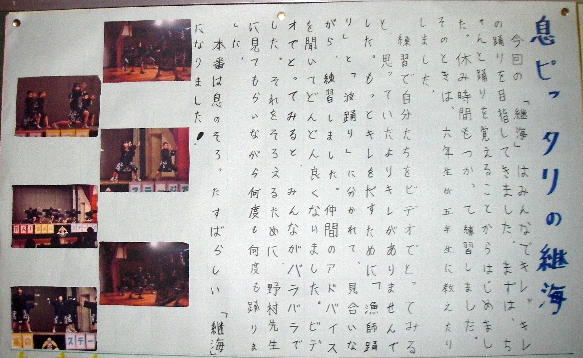 息ピッタリの継海
今回の「継海」はみんなでキレッキレ
の踊りを目指してきました。まずは、ち
ゃんと踊りを覚えることからはじめまし
た。休み時間もつかって練習しました。
そのときは、六年生が五年生に教えたり
しました。
練習で自分たちをビデオでとってみる
と、思っていたよりキレがありませんで
した。もっとキレを出すために「漁師踊
り」と「波踊り」に分かれて、見合いな
がら練習しました。仲間のアドバイス
を聞いてどんどん良くなりました。ビデ
オでとってみると、みんながバラバラで
した。それをそろえるために、野村先生
に見てもらいながら何度も何度も踊りま
した。
本番は息のそろったすばらしい「継海」
になりました!